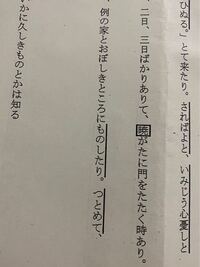 ひぬる。」とて来たり。さればよと、いみじう心憂しと
、二日、三日ばかりありて、暁がたに門をたたく時あり。
、例の家とおぼしきところにものしたり。つとめて、
いかに久しきものとかは知る